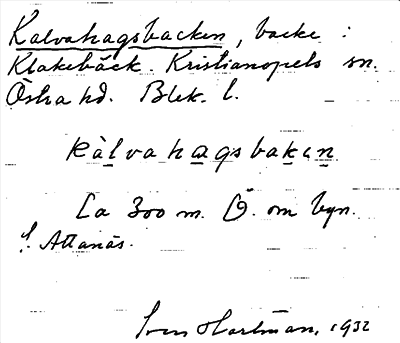 Kalvahagsbacken, backe i
Klakebäck. Kristianopels sn.
Östra hd. Blek. l.
kàlvahagsbakɛn
Ca 300 m. Ö. om byn.
Attanäs.
Sven Hartman, 1932